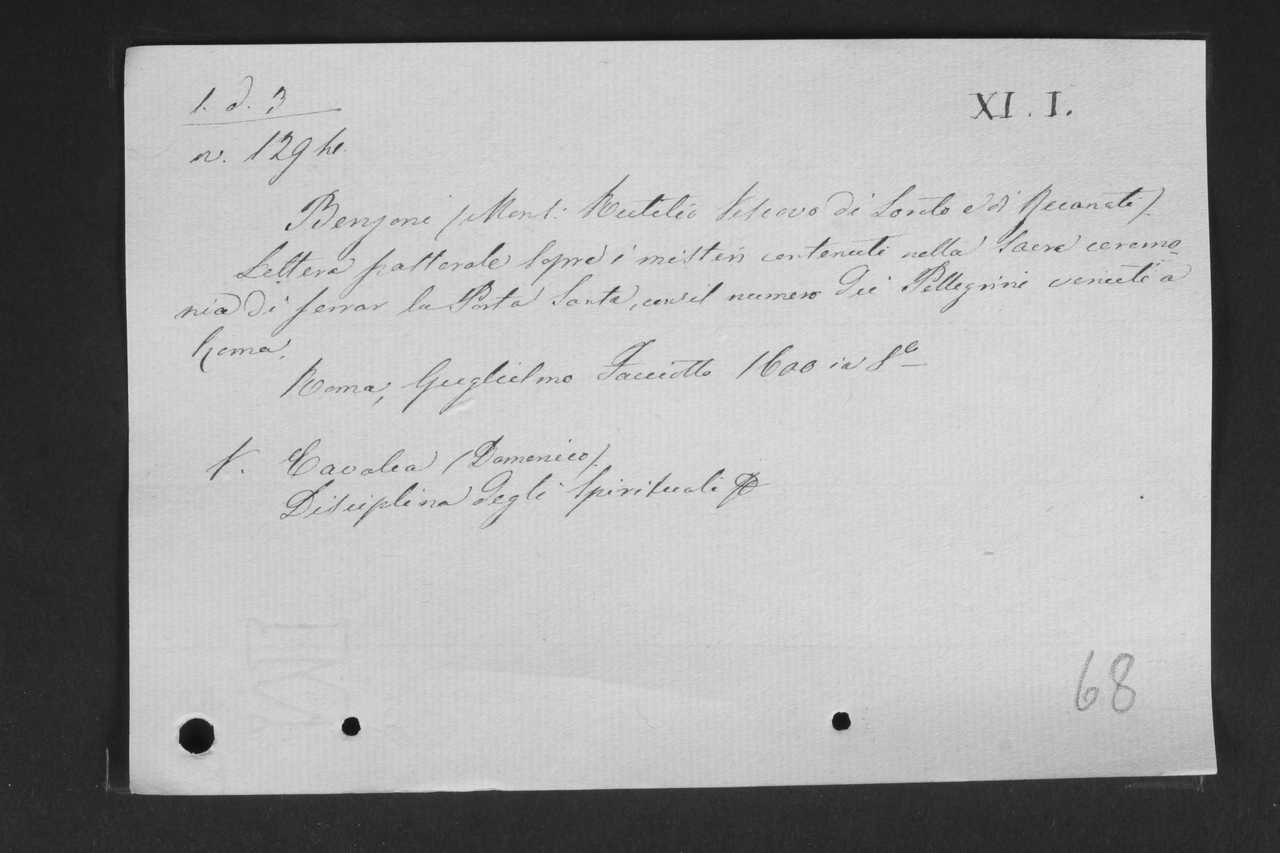 1. d. 3
XI. I.
n. 129 he.
Benzoni (Mons: Rutilio Vescovo di Loreto e di Recanati).
Lettera pastorale sopra i misterii contenuti nella sacra ceremo-
nia di serrar la Porta Santa, con il numero dei Pellegrini venuti a
Roma.
Roma, Guglielmo Facciotto 1600 in 8º
V. Cavalca (Domenico).
Disciplina degli Spirituali
68